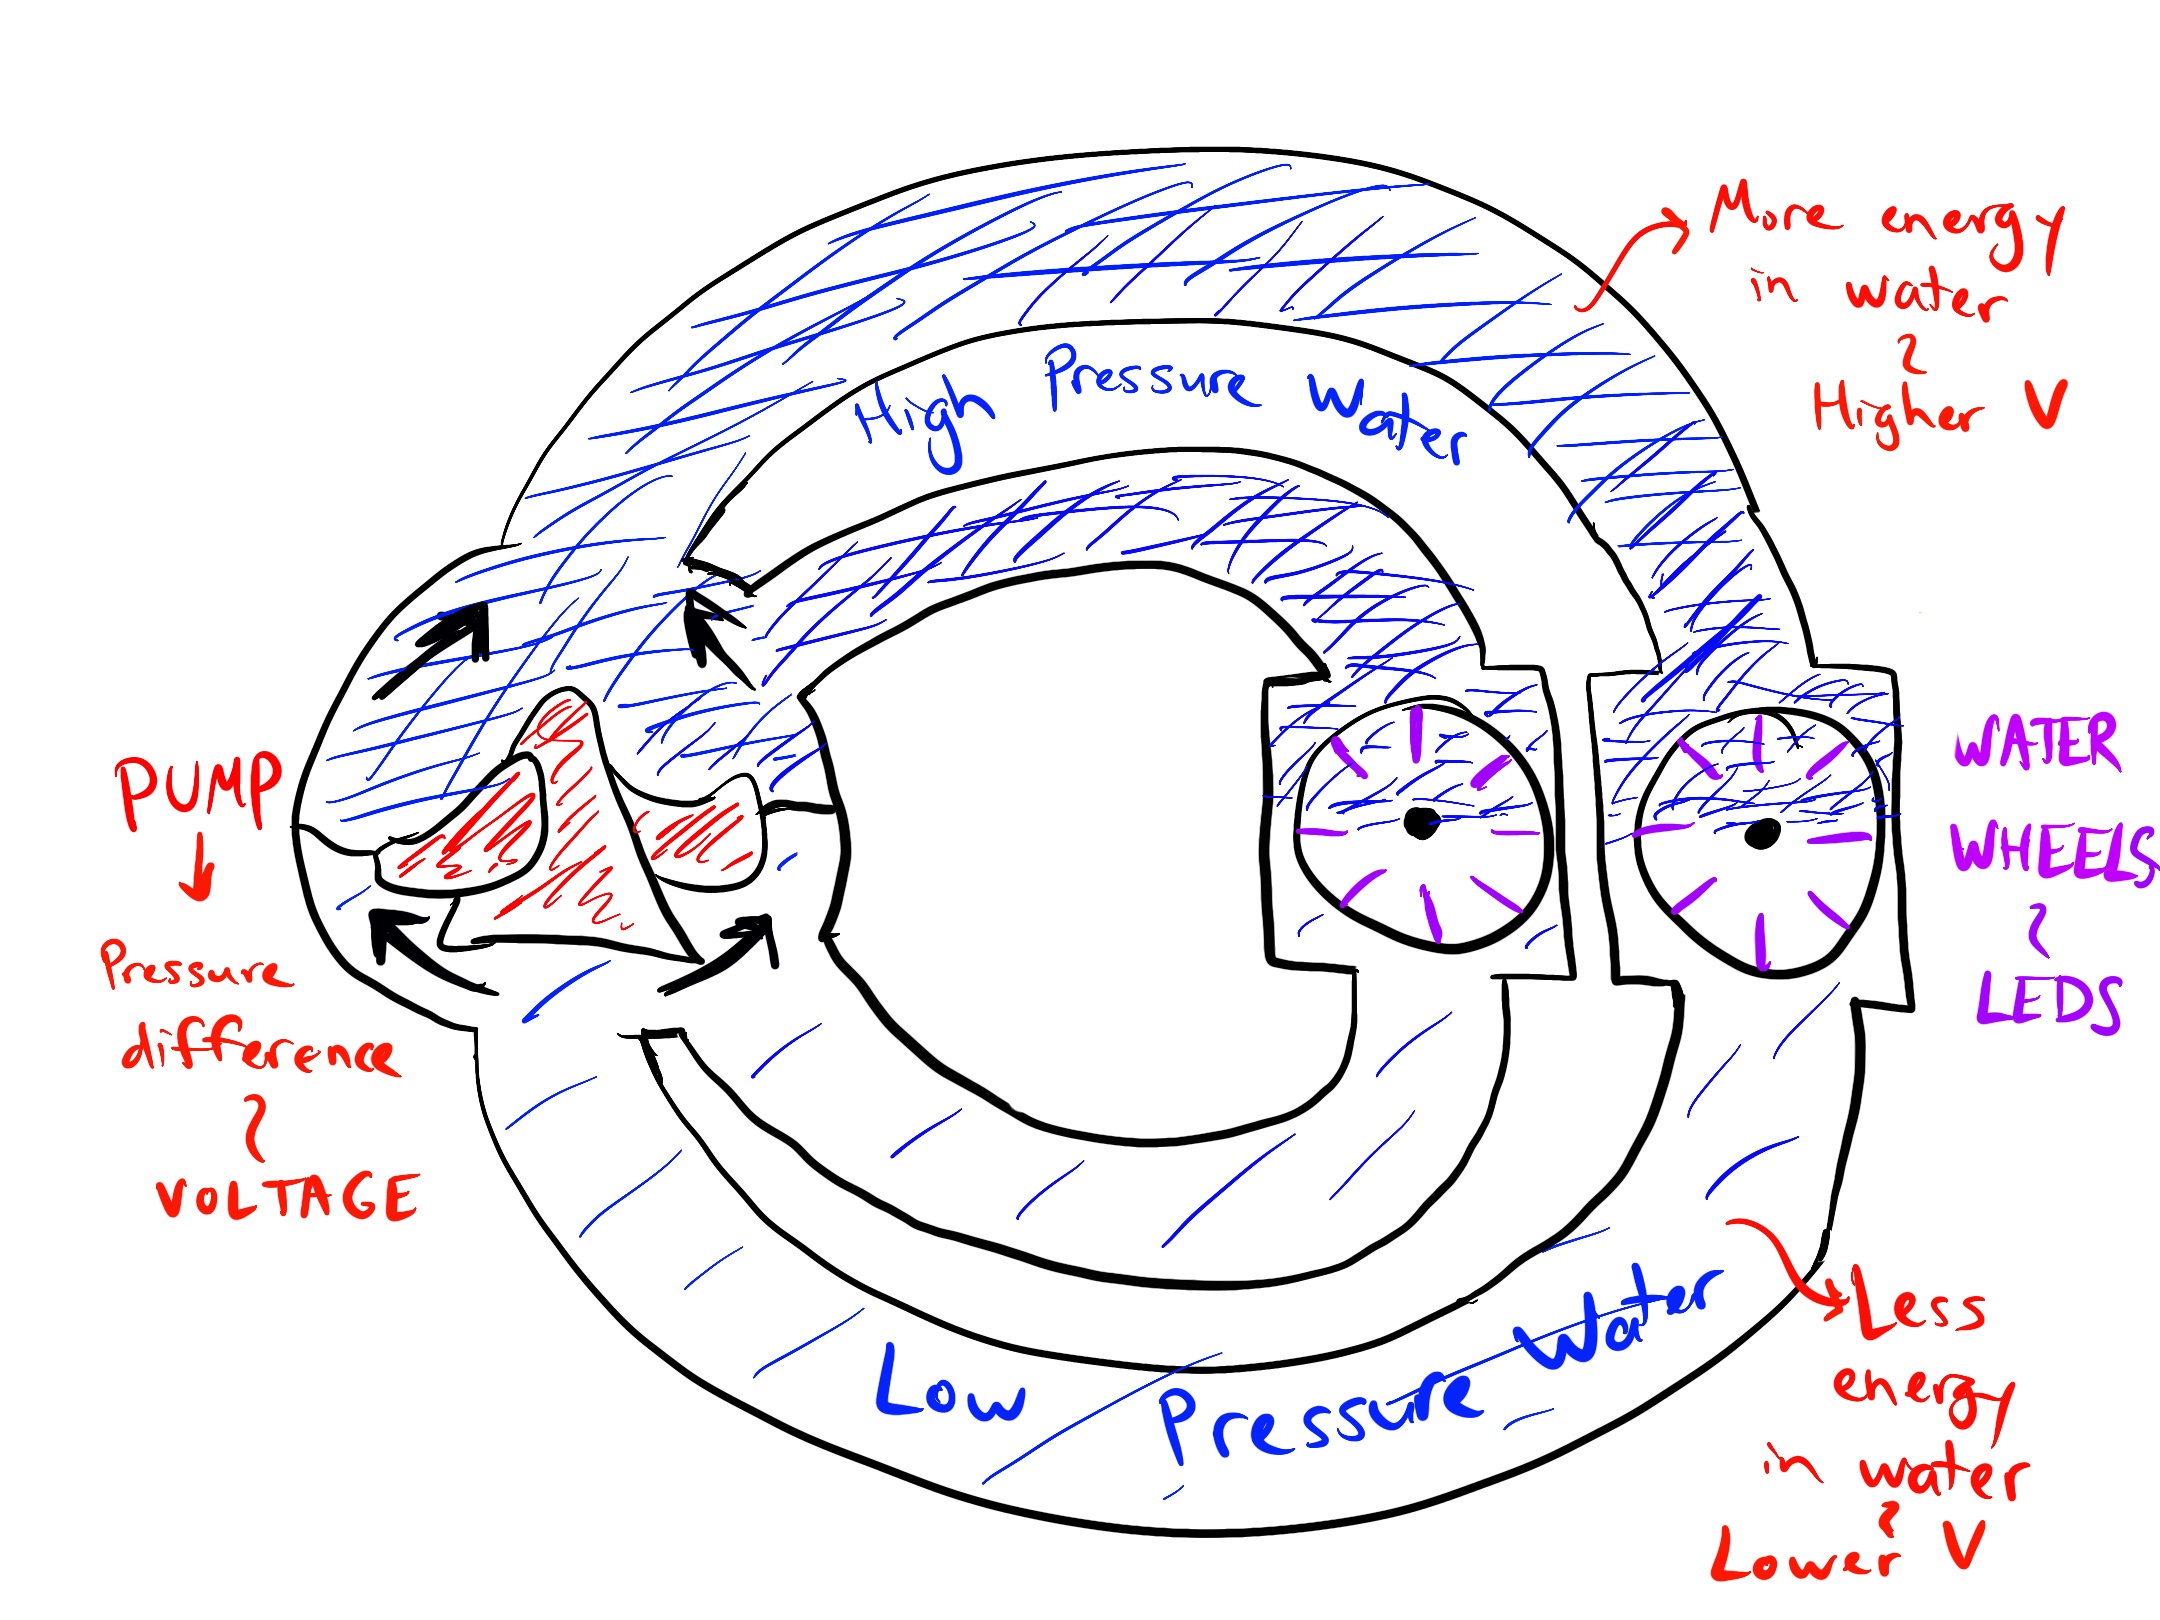 More energy
in water
Higher V
High Pressure Water
PUMP
Pressure
difference
VOLTAGE
WATER
WHEELS
LEDS
Low Pressure Water
Less
energy
in water
Lower V